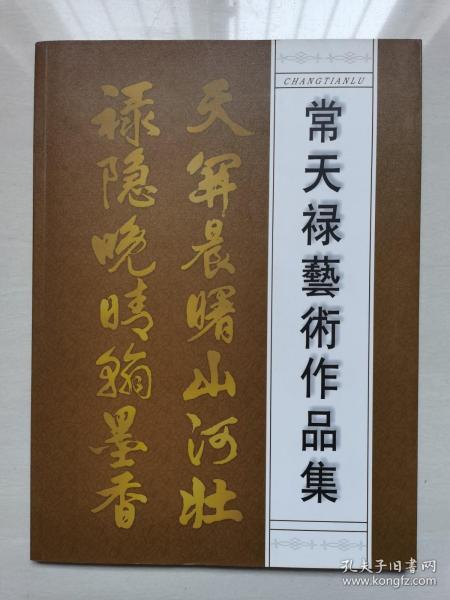 CHANGTIANLU
常天禄藝術作品集
天开晨曙山河壮
禄隐晚晴翰墨香
孔夫子旧书网
www.kongfz.com